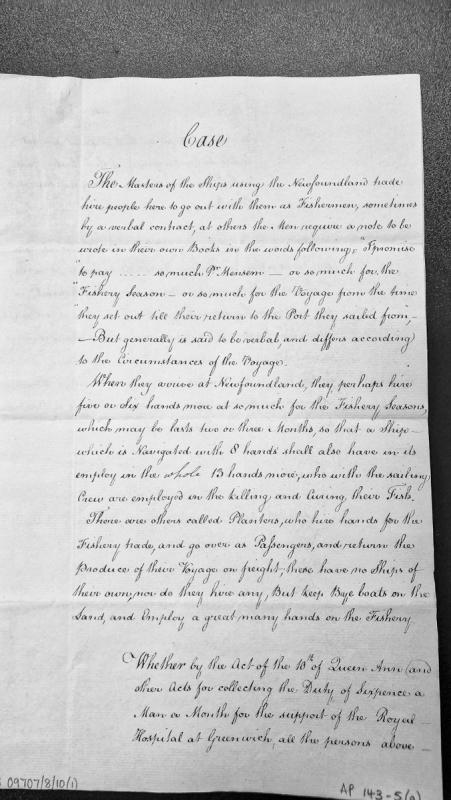 Case
The Masters of the Ships using the Newfoundland trade
hire people here to go out with them as Fishermen, sometimes
by a verbal contract, at others the Men require a note to be
wrote in their own Books in the words following, "I promise
"to pay ..... so much Pr. Mensem — or so much for the
"Fishery Season — or so much for the Voyage from the time
"they set out till their return to the Port they sailed from, —
— But generally is said to be verbal, and differs according
to the Circumstances of the Voyage.
When they arrive at Newfoundland, they perhaps hire
five or Six hands more at so much for the Fishery Seasons,
which may be lasts two or three Months, so that a Ship —
which is Navigated with 8 hands shall also have in its
employ in the whole 13 hands more, who with the sailing
Crew are employed in the killing and Curing, their Fish.
There are others called Planters, who hire hands for the
Fishery trade, and go over as Passengers, and return the
Produce of their Voyage on freight, these have no Ships of
their own, nor do they hire any, But keep Bye boats on the
Land, and Employ a great many hands on the Fishery
Whether by the Act of the 10th of Queen Ann (and
other Acts for collecting the Duty of Sixpence a
Man a Month for the support of the Royal —
Hospital at Greenwich, all the persons above —
09707/8/10(1)
AP 143-5(a)